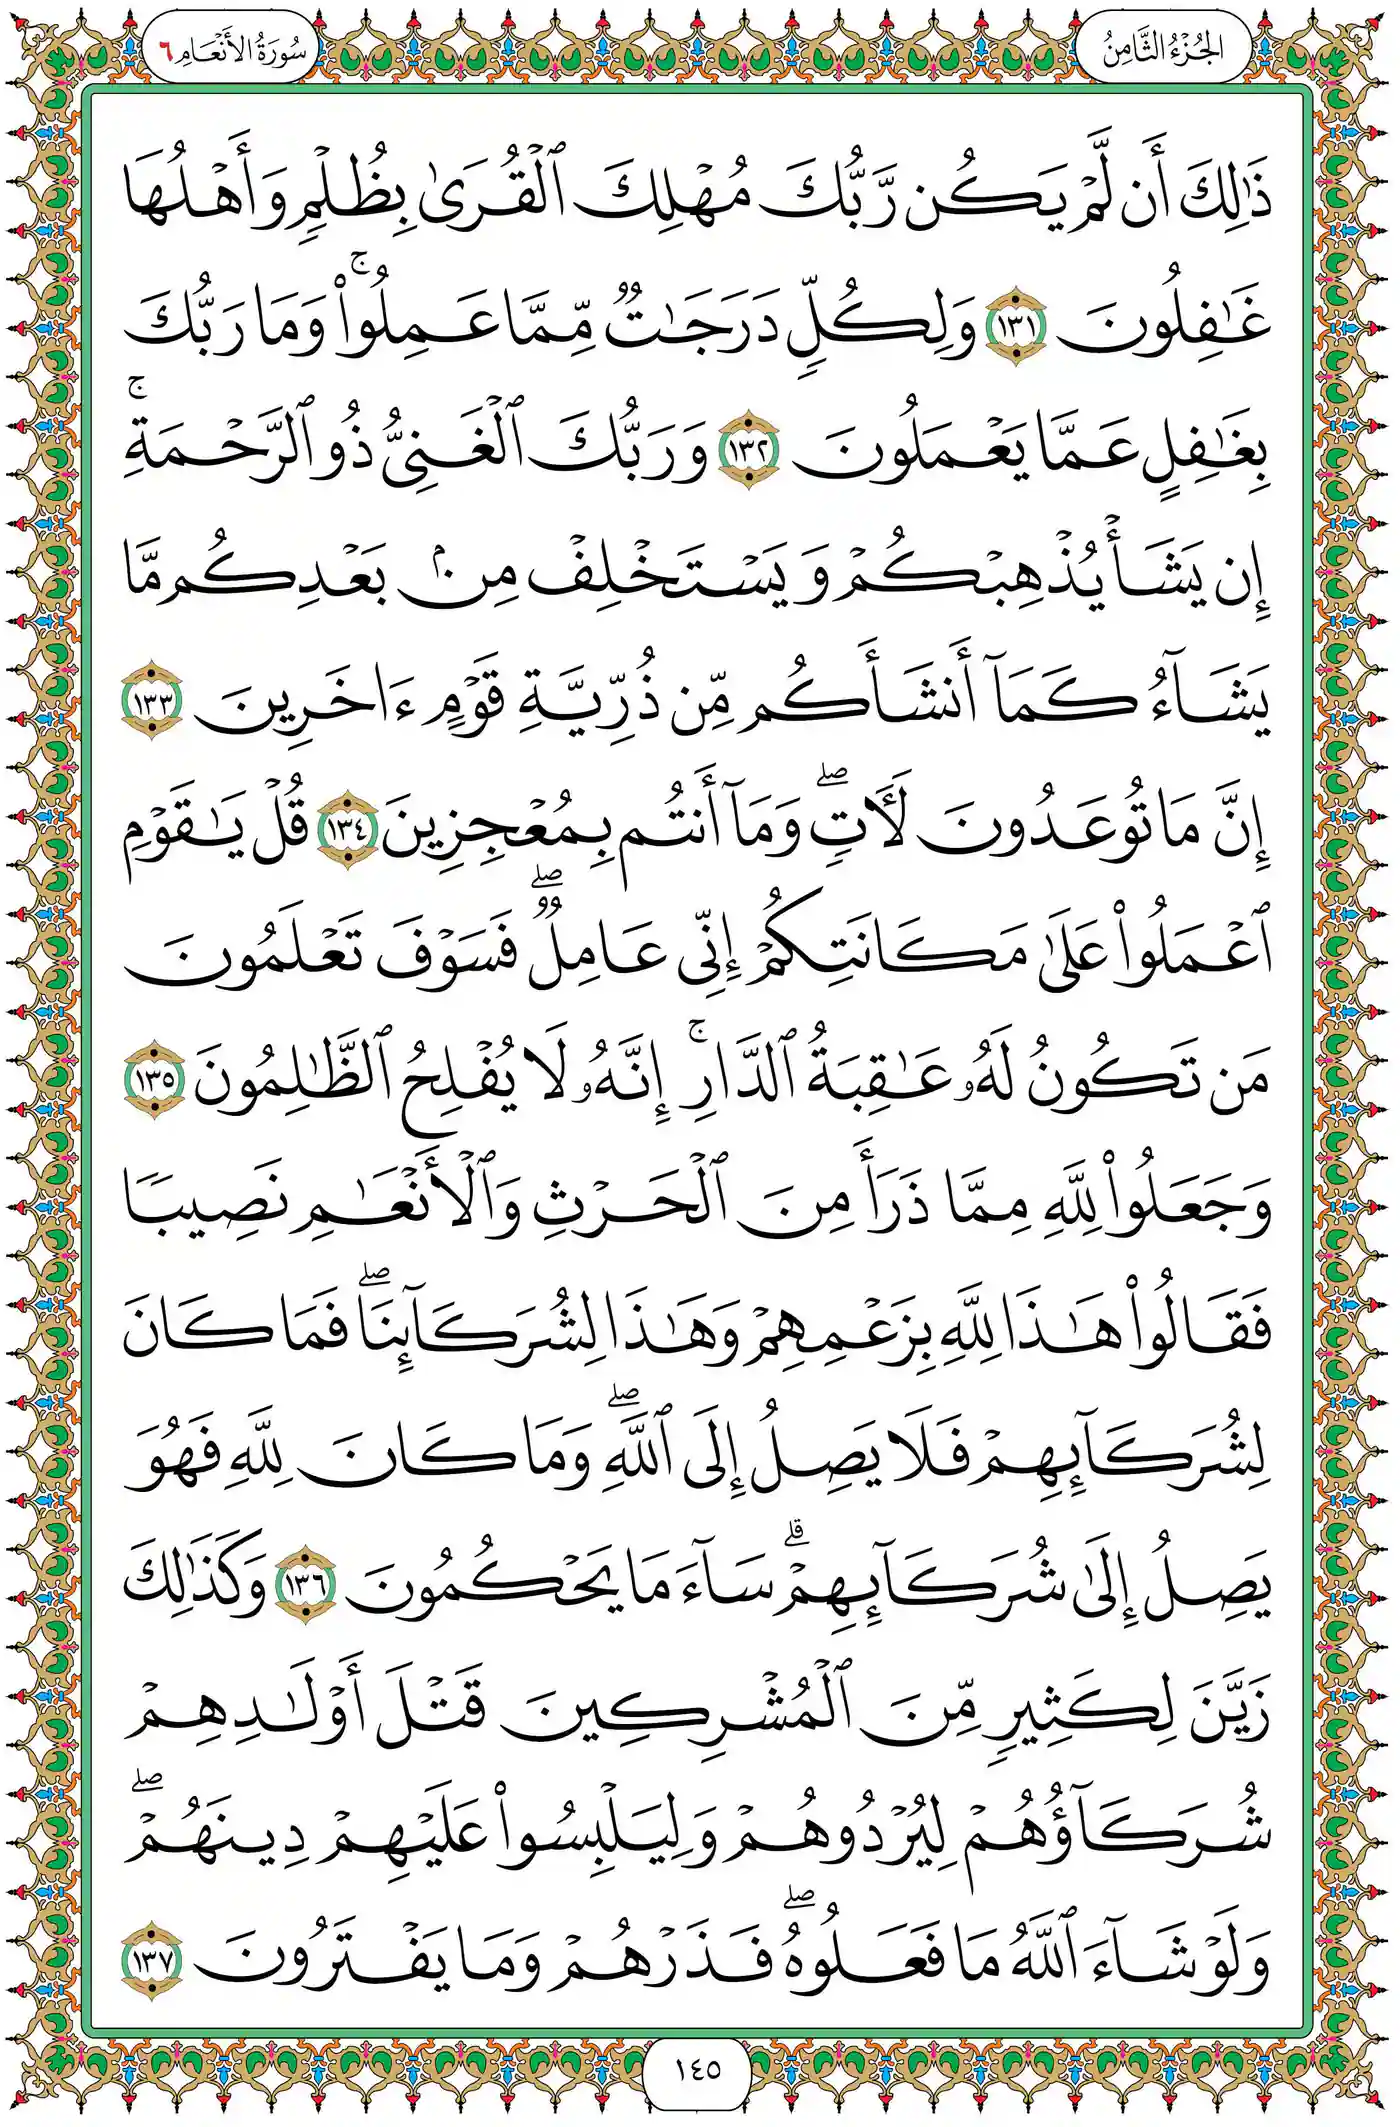 الجُزْءُ الثَّامِنُ
سُورَةُ الأَنْعَامِ ٦
ذَٰلِكَ أَن لَّمْ يَكُن رَّبُّكَ مُهْلِكَ ٱلْقُرَىٰ بِظُلْمٍ وَأَهْلُهَا
غَـٰفِلُونَ ١٣١ وَلِكُلٍّ دَرَجَـٰتٌ مِّمَّا عَمِلُوا۟ ۚ وَمَا رَبُّكَ
بِغَـٰفِلٍ عَمَّا يَعْمَلُونَ ١٣٢ وَرَبُّكَ ٱلْغَنِىُّ ذُو ٱلرَّحْمَةِ ۚ
إِن يَشَأْ يُذْهِبْكُمْ وَيَسْتَخْلِفْ مِنۢ بَعْدِكُم مَّا
يَشَآءُ كَمَآ أَنشَأَكُم مِّن ذُرِّيَّةِ قَوْمٍ ءَاخَرِينَ ١٣٣
إِنَّ مَا تُوعَدُونَ لَـَٔاتٍ ۖ وَمَآ أَنتُم بِمُعْجِزِينَ ١٣٤ قُلْ يَـٰقَوْمِ
ٱعْمَلُوا۟ عَلَىٰ مَكَانَتِكُمْ إِنِّى عَامِلٌ ۖ فَسَوْفَ تَعْلَمُونَ
مَن تَكُونُ لَهُۥ عَـٰقِبَةُ ٱلدَّارِ ۚ إِنَّهُۥ لَا يُفْلِحُ ٱلظَّـٰلِمُونَ ١٣٥
وَجَعَلُوا۟ لِلَّهِ مِمَّا ذَرَأَ مِنَ ٱلْحَرْثِ وَٱلْأَنْعَـٰمِ نَصِيبًا
فَقَالُوا۟ هَـٰذَا لِلَّهِ بِزَعْمِهِمْ وَهَـٰذَا لِشُرَكَآئِنَا ۖ فَمَا كَانَ
لِشُرَكَآئِهِمْ فَلَا يَصِلُ إِلَى ٱللَّهِ ۖ وَمَا كَانَ لِلَّهِ فَهُوَ
يَصِلُ إِلَىٰ شُرَكَآئِهِمْ ۗ سَآءَ مَا يَحْكُمُونَ ١٣٦ وَكَذَٰلِكَ
زَيَّنَ لِكَثِيرٍ مِّنَ ٱلْمُشْرِكِينَ قَتْلَ أَوْلَـٰدِهِمْ
شُرَكَآؤُهُمْ لِيُرْدُوهُمْ وَلِيَلْبِسُوا۟ عَلَيْهِمْ دِينَهُمْ ۖ
وَلَوْ شَآءَ ٱللَّهُ مَا فَعَلُوهُ ۖ فَذَرْهُمْ وَمَا يَفْتَرُونَ ١٣٧
١٤٥